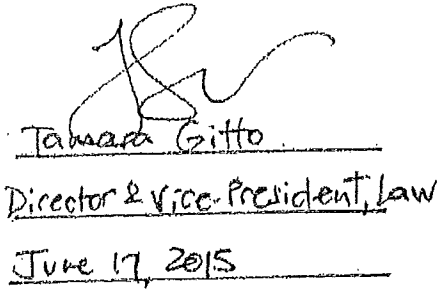 Tamara Gitto
Director & Vice-President, Law
June 17, 2015